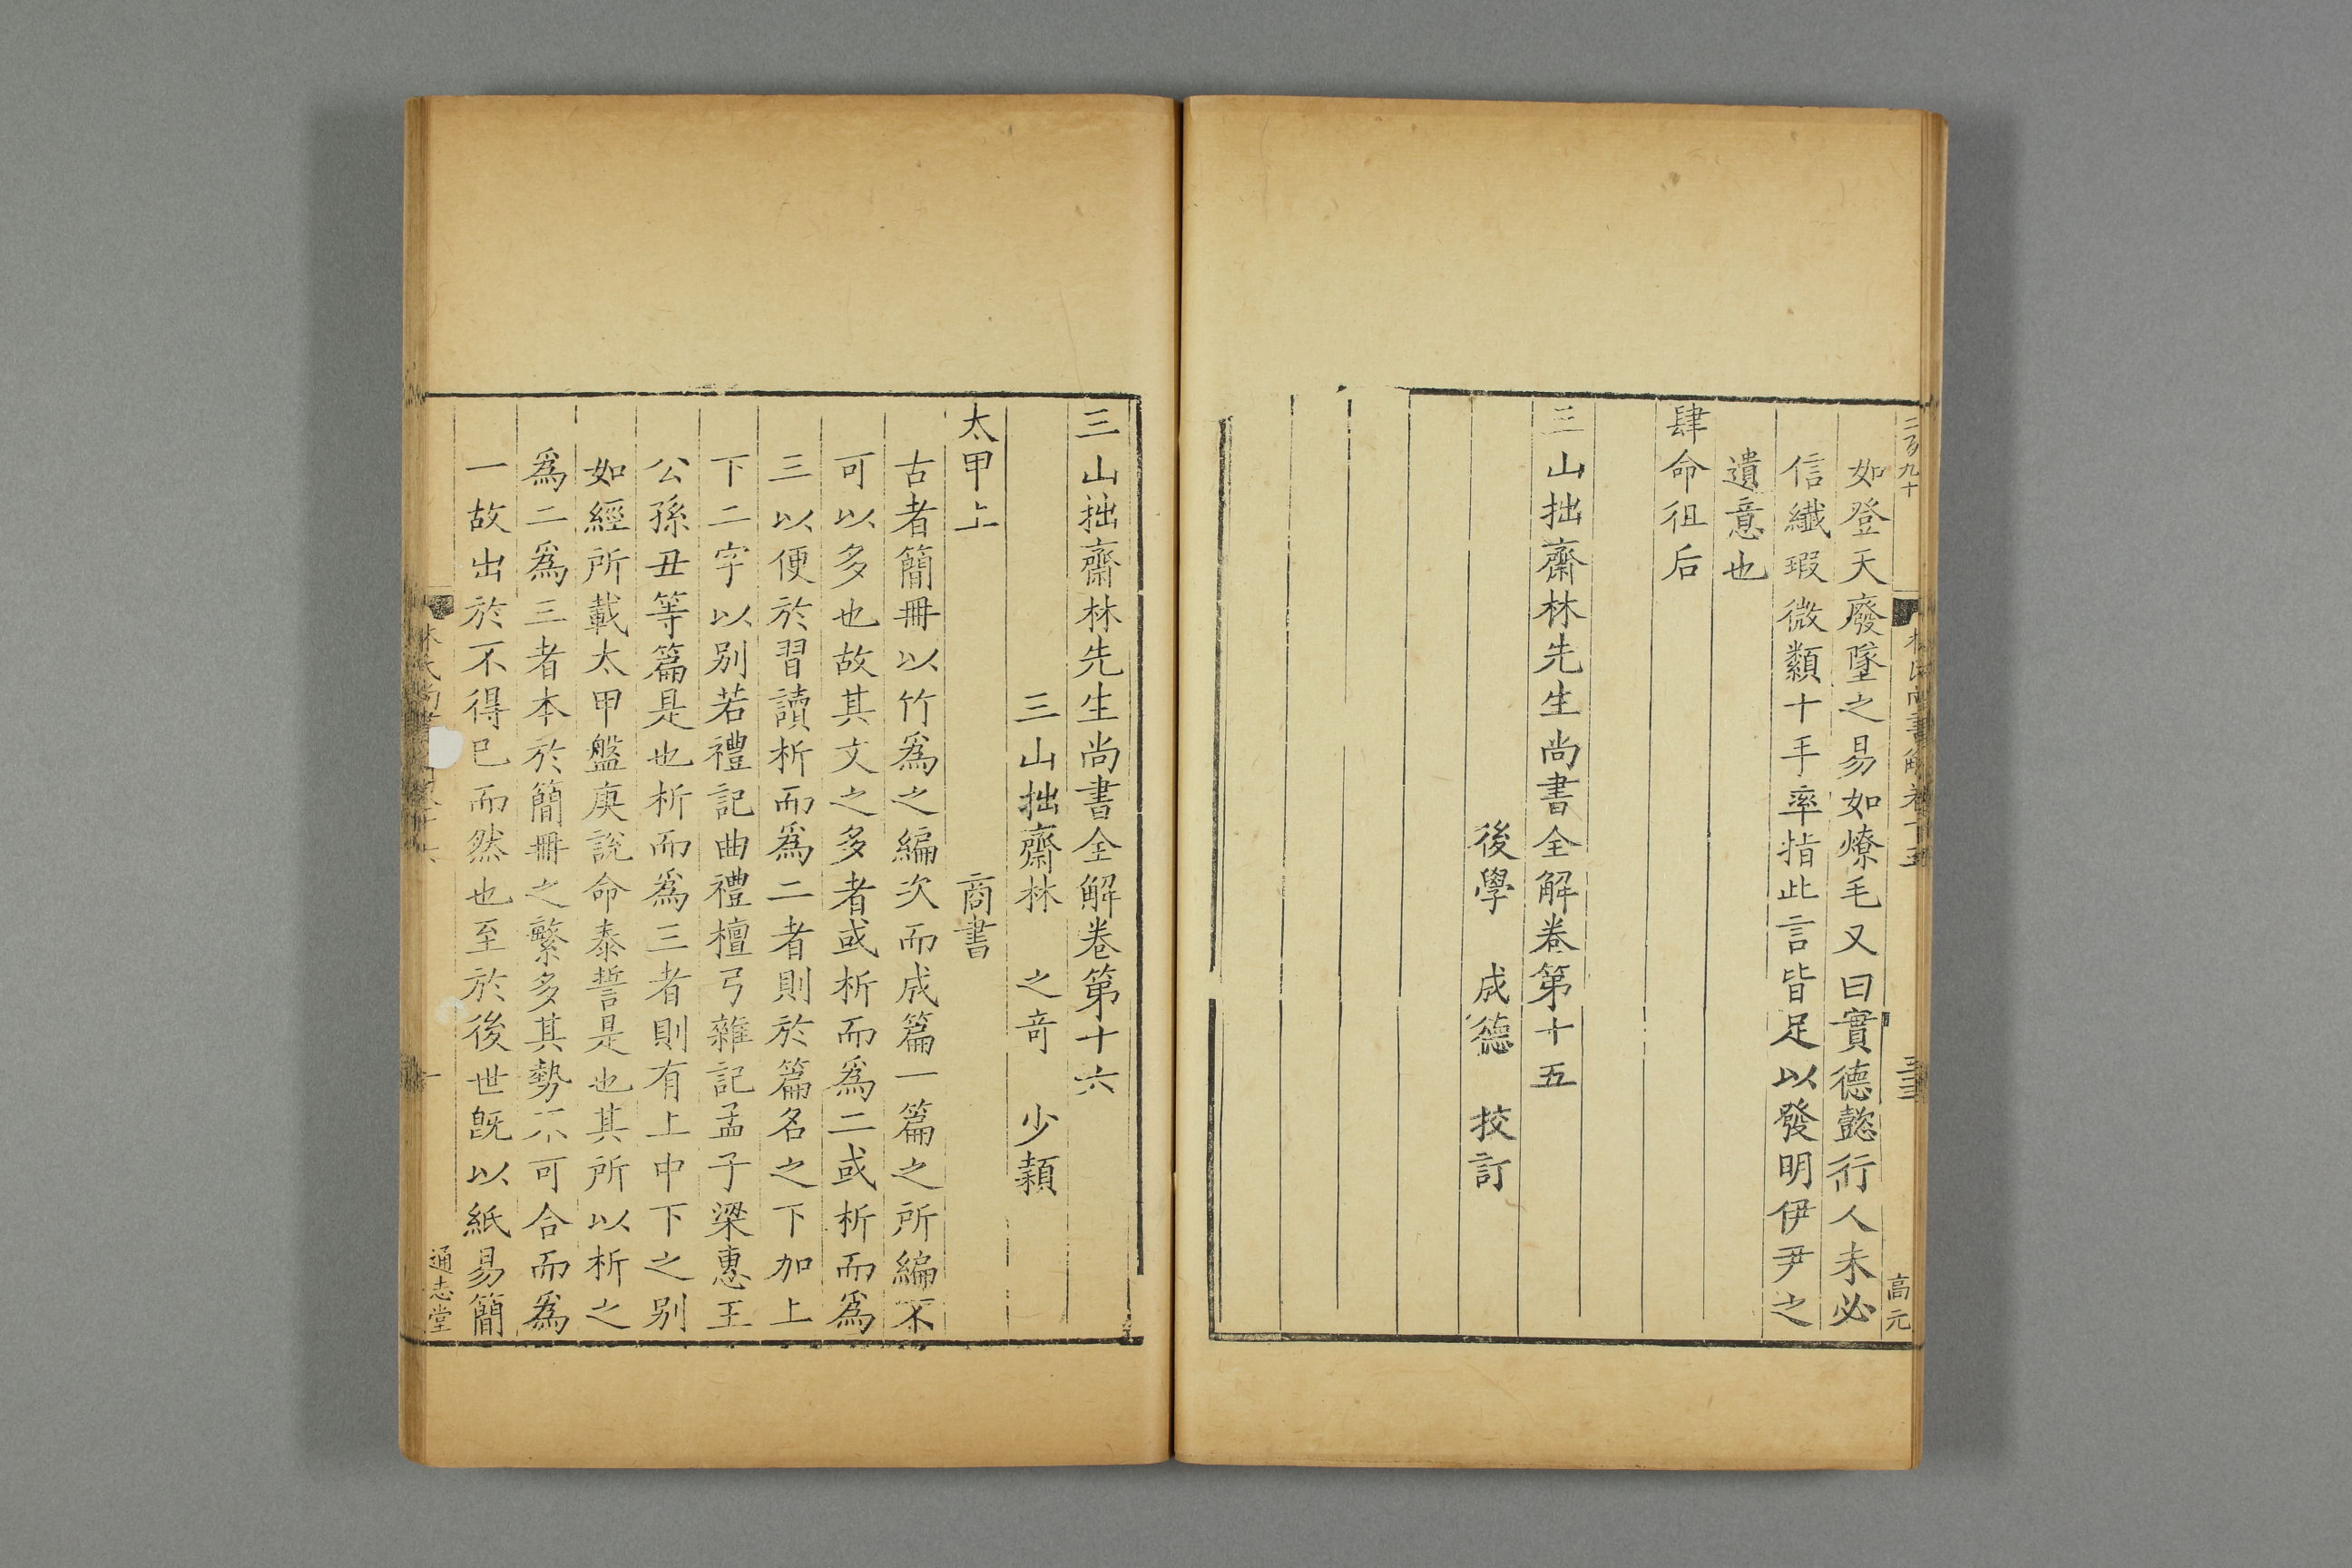 二百九十
如登天廢墜之易如燎毛又曰實德懿行人未必
信纖瑕微纇十手率指此言皆足以發明伊尹之
遺意也
肆命徂后
三山拙齋林先生尚書全解卷第十五
後學 成德 挍訂
高元
三山拙齋林先生尚書全解卷第十六
三山拙齋林 之奇 少穎
太甲上 商書
古者簡冊以竹爲之編次而成篇一篇之所編不
可以多也故其文之多者或析而爲二或析而爲
三以便於習讀析而爲二者則於篇名之下加上
下二字以別若禮記曲禮檀弓雜記孟子梁惠王
公孫丑等篇是也析而爲三者則有上中下之別
如經所載太甲盤庚說命泰誓是也其所以析之
爲二爲三者本於簡冊之繁多其勢不可合而爲
一故出於不得已而然也至於後世旣以紙易簡
一
通志堂